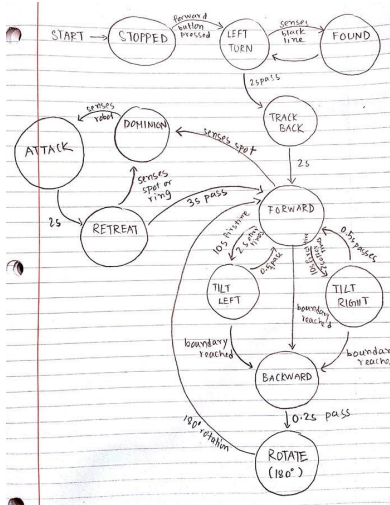 START
STOPPED
forward
button
pressed
LEFT
TURN
senses
black
line
FOUND
2s pass
TRACK
BACK
2s
senses
robot
DOMINION
senses spot
ATTACK
senses
spot or
ring
2s
RETREAT
3s pass
FORWARD
10s first time
0.5s pass
0.5s passes
TILT
LEFT
TILT
RIGHT
boundary
reached
boundary
reached
boundary
reached
BACKWARD
0.2s pass
180° rotation
ROTATE
(180°)